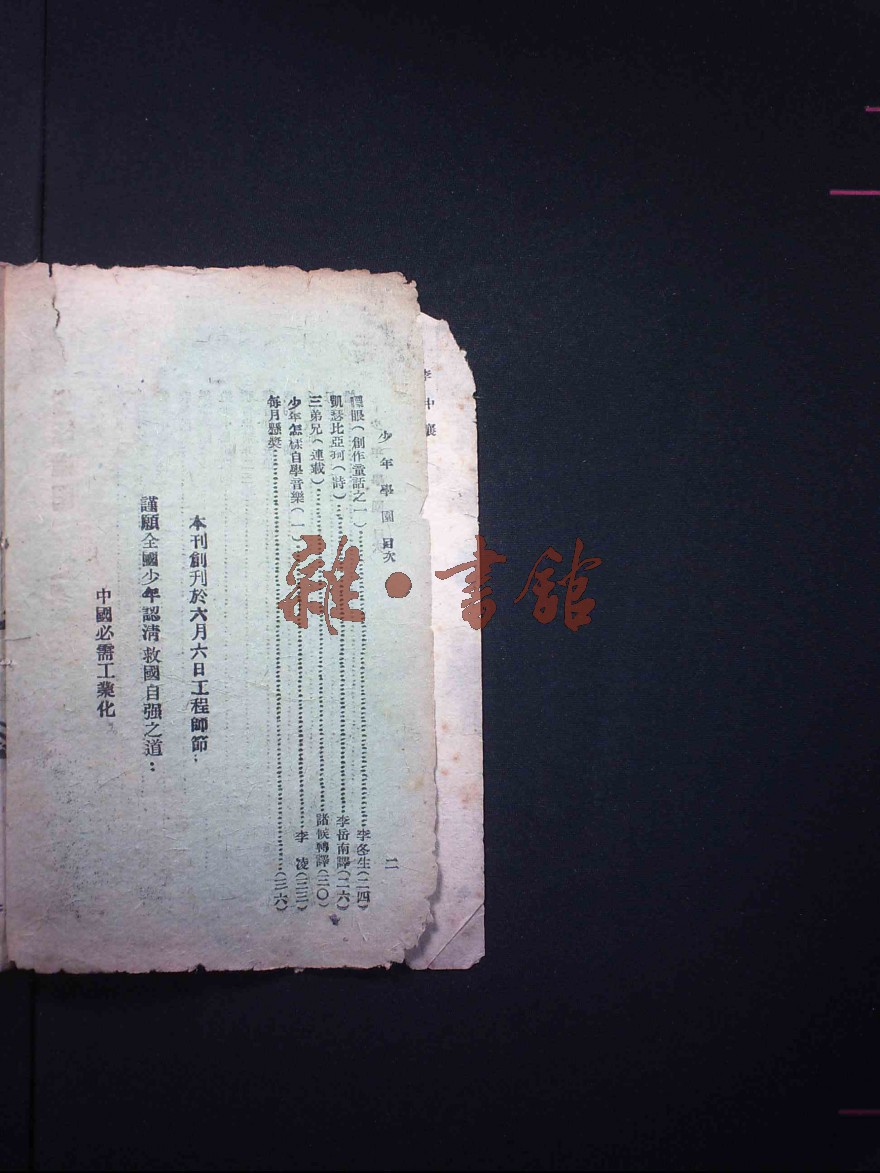 李中襄
少年學園 目次 二
眼(創作童話之一)……李冬生(二四)
凱瑟比亞珂(詩)……李岳南譯(二六)
三弟兄(連載)……諸侯轉譯(三〇)
少年怎樣自學音樂(一)……李凌(三三)
每月懸獎……(三六)
本刊創刊於六月六日工程師節,
謹願全國少年認清救國自强之道:
中國必需工業化
雜·書館